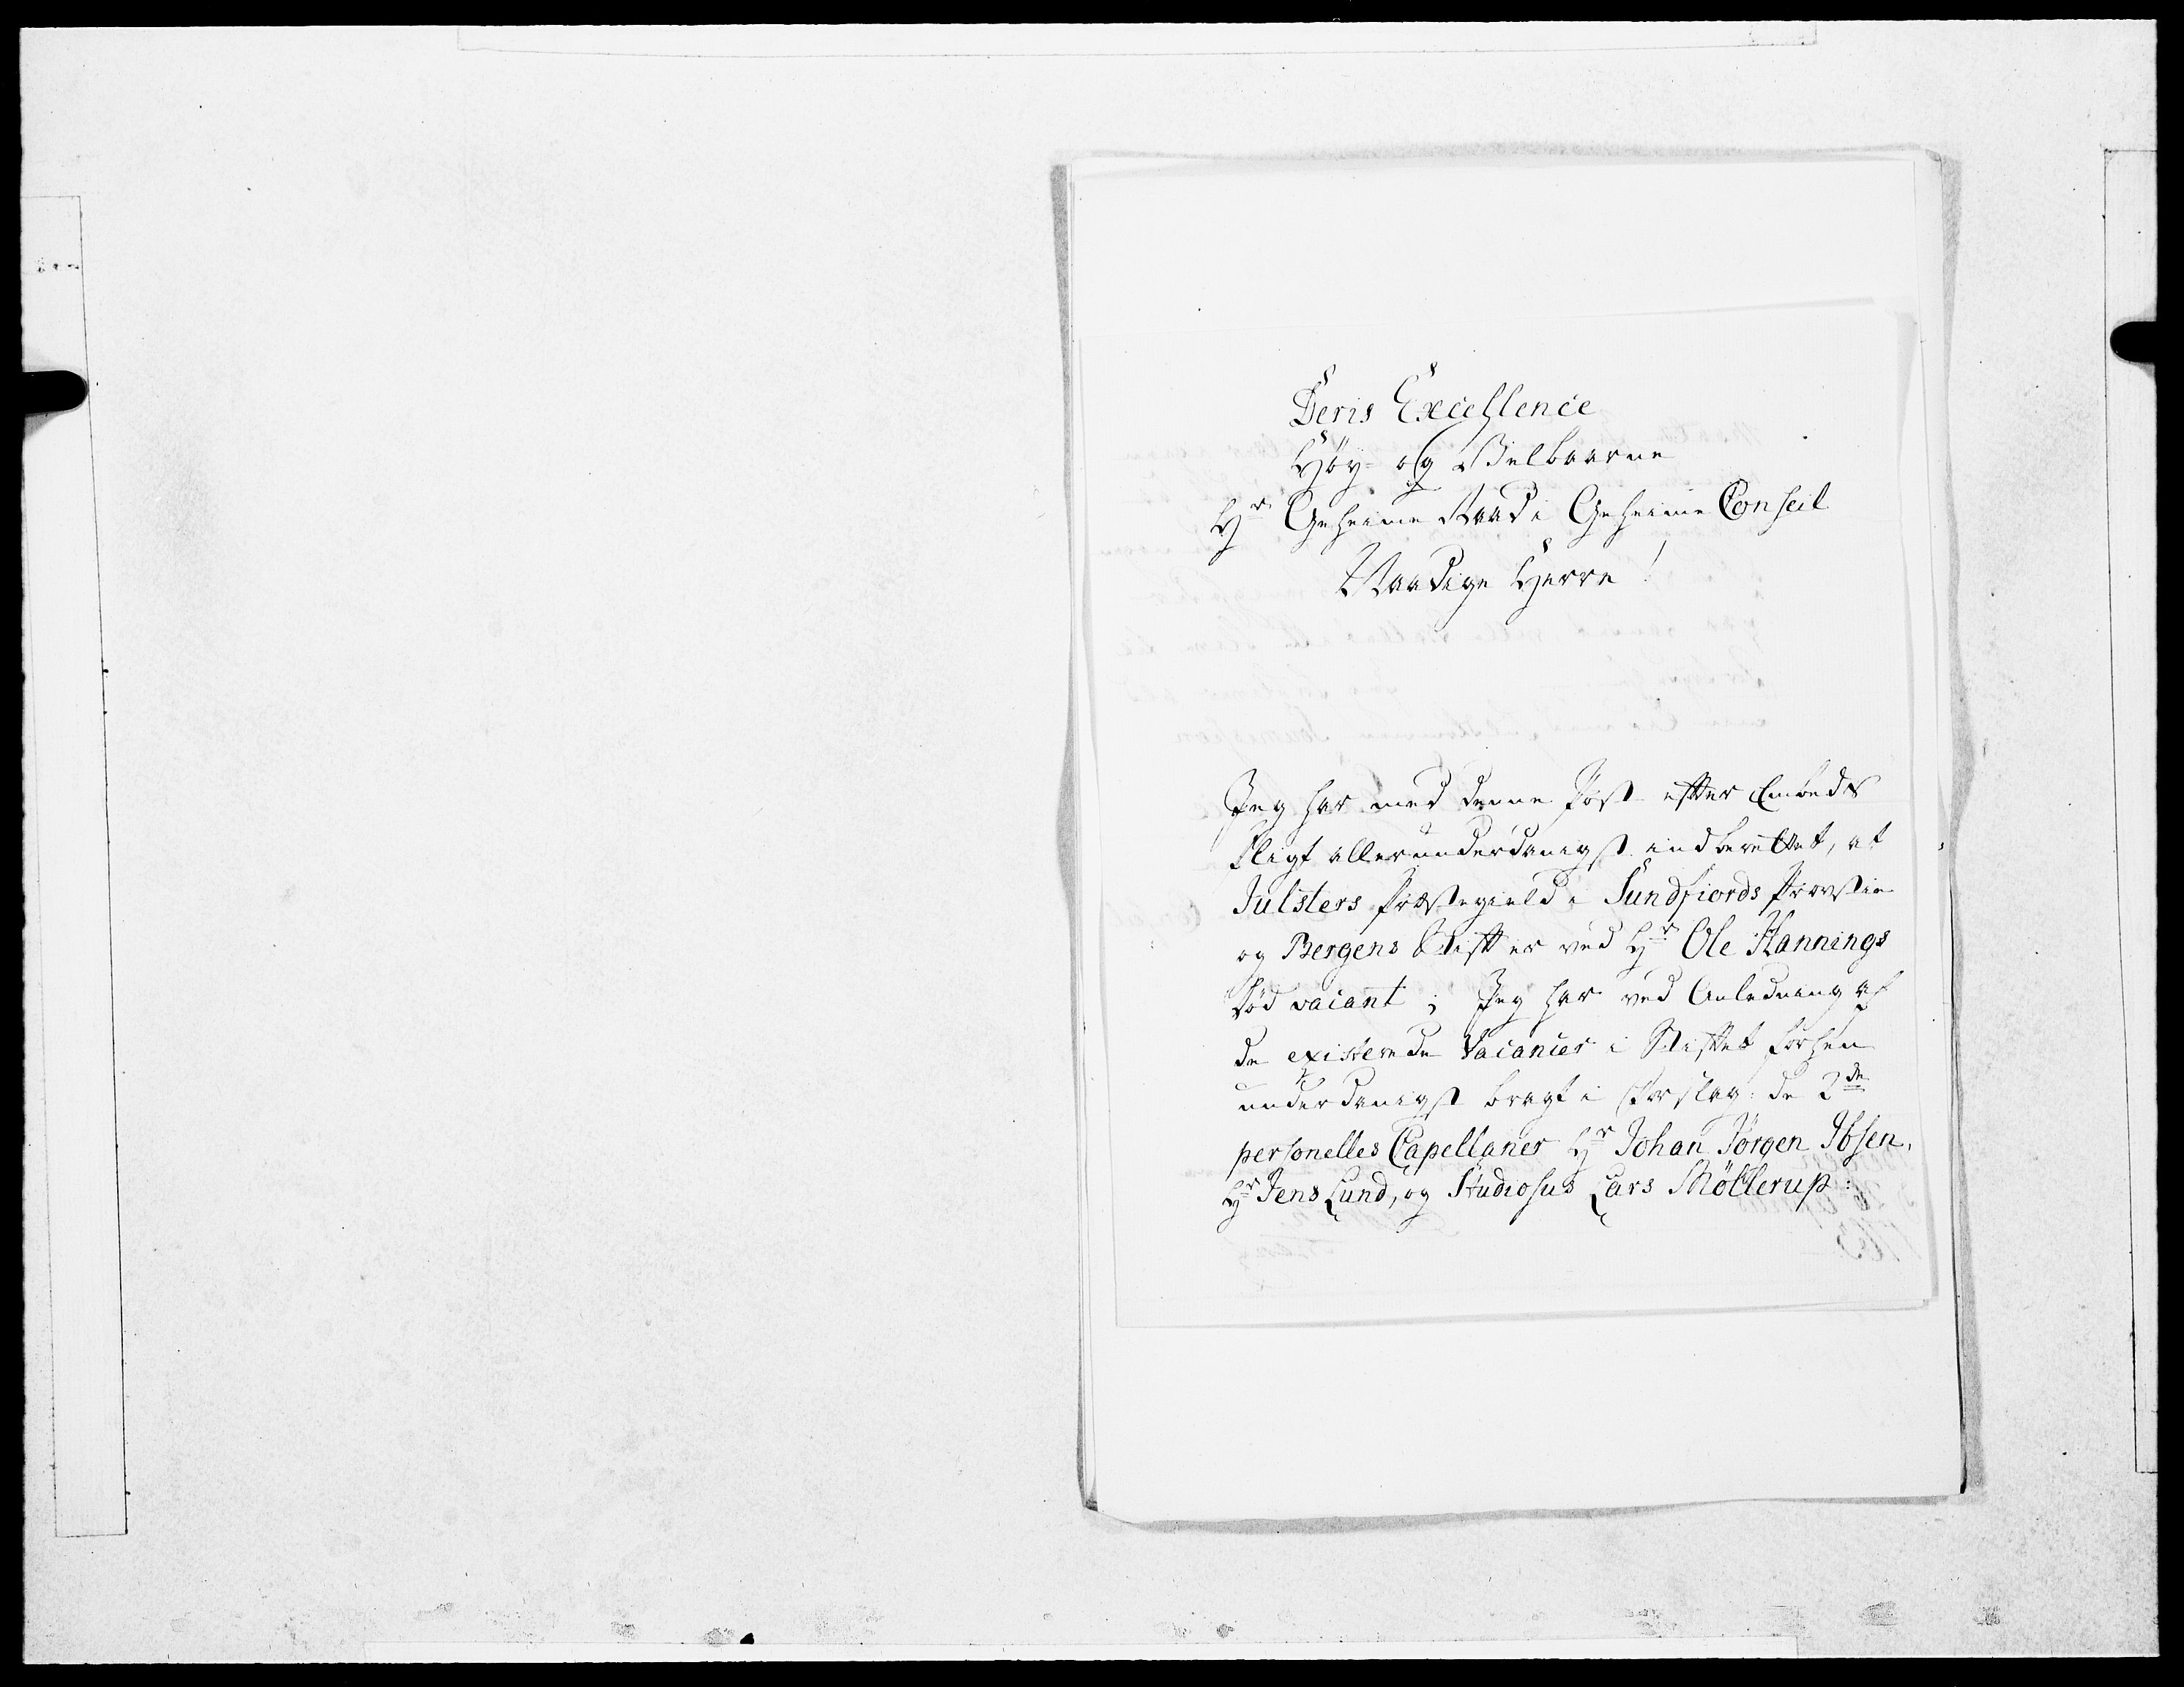 Deris Excellence
Høy- og Velbaarne
Hr Geheime Raad i Geheime Conseil
Naadige Herre!
Jeg har med denne Post efter Embeds
Pligt allerunderdanigst indberettet, at
Julsters Præstegield i Sundfiords Provstie
og Bergens Stift er ved Hr Ole Hannings
Død vacant; Jeg har ved Anledning af
de existerede Vacancer i Stiftet forhen
underdanigst bragt i Forslag: de 2de
personelles Capellaner Hr Johan Jørgen Ibsen,
Hr Jens Lund, og Studiosus Lars Møllerup: